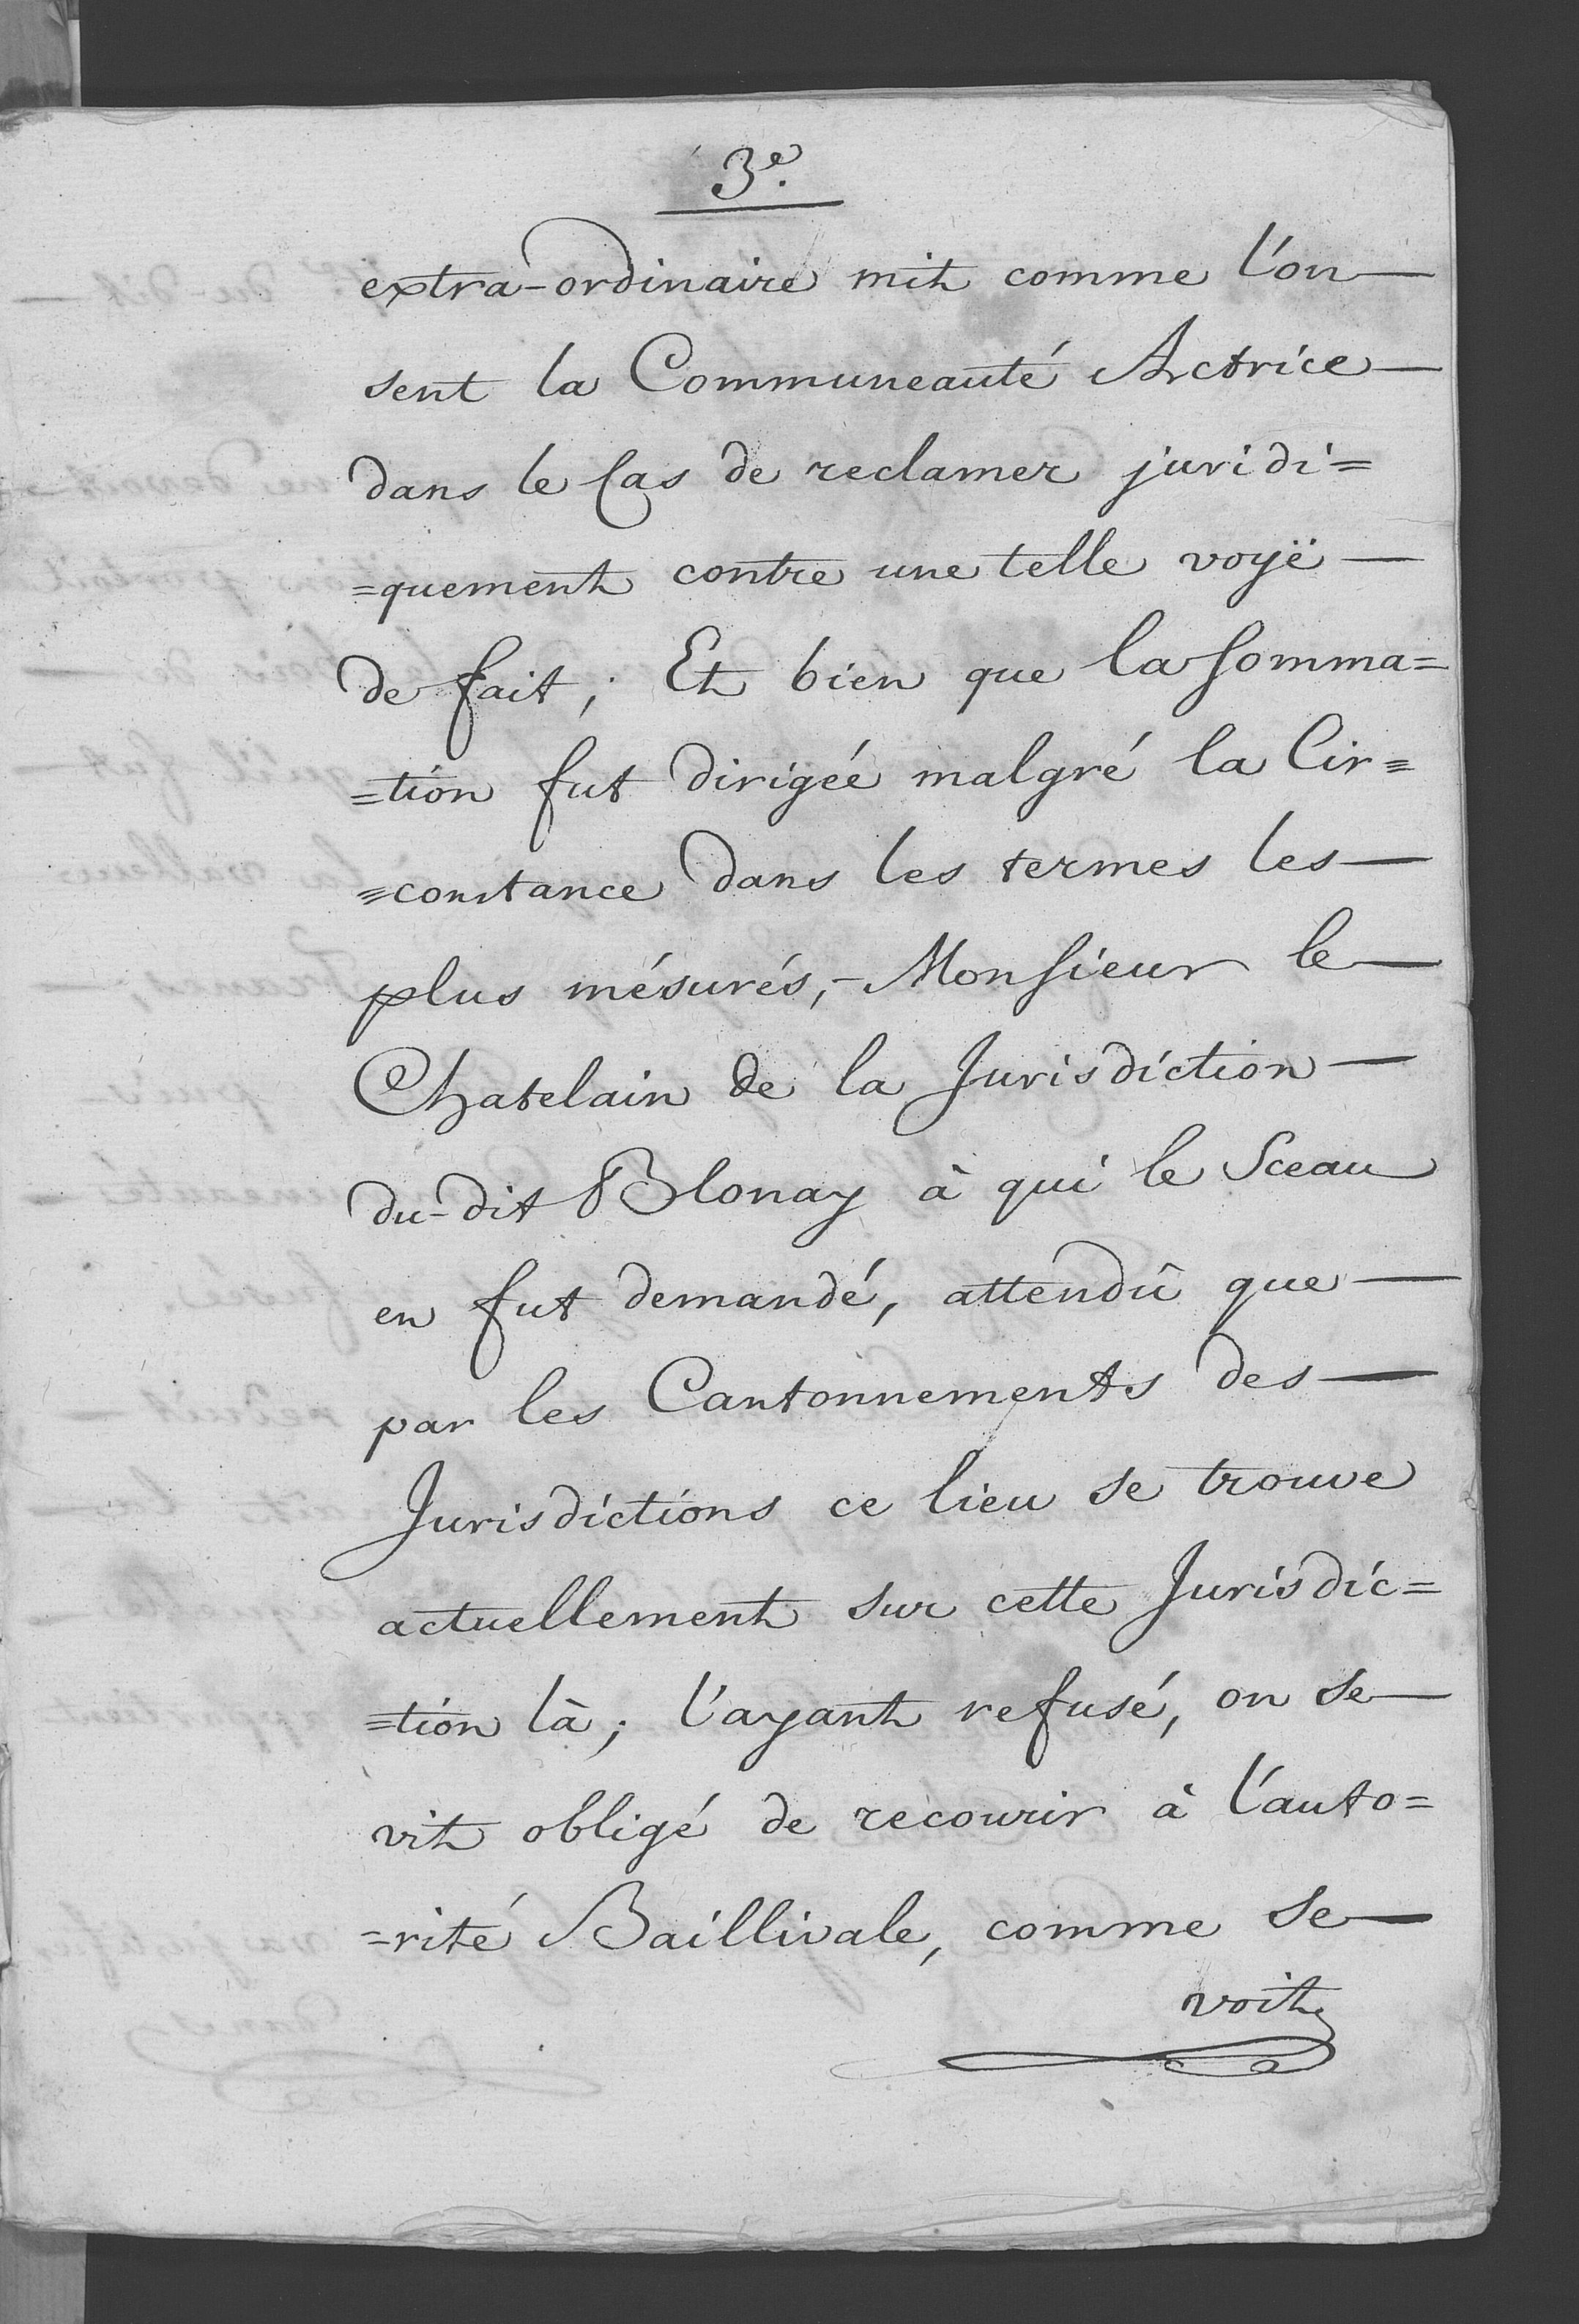 3e.
extra-ordinaire mit comme l'on —
sent la Communeauté Actrice —
dans le Cas de reclamer juridi=
=quement contre une telle voyë —
de fait; Et bien que la somma=
=tion fut dirigéé malgré la Cir=
=constance dans les termes les —
plus mésurés, - Monsieur le —
Chatelain de la Jurisdiction —
du-dit Blonay à qui le Sceau
en fut demandé, attendû que —
par les Cantonnements des —
Jurisdictions ce lieu se trouve
actuellement sur cette Jurisdic=
=tion là; l'ayant refusé, on se —
vit obligé de recourir à l'auto=
=rité Baillivale, comme se —
voit